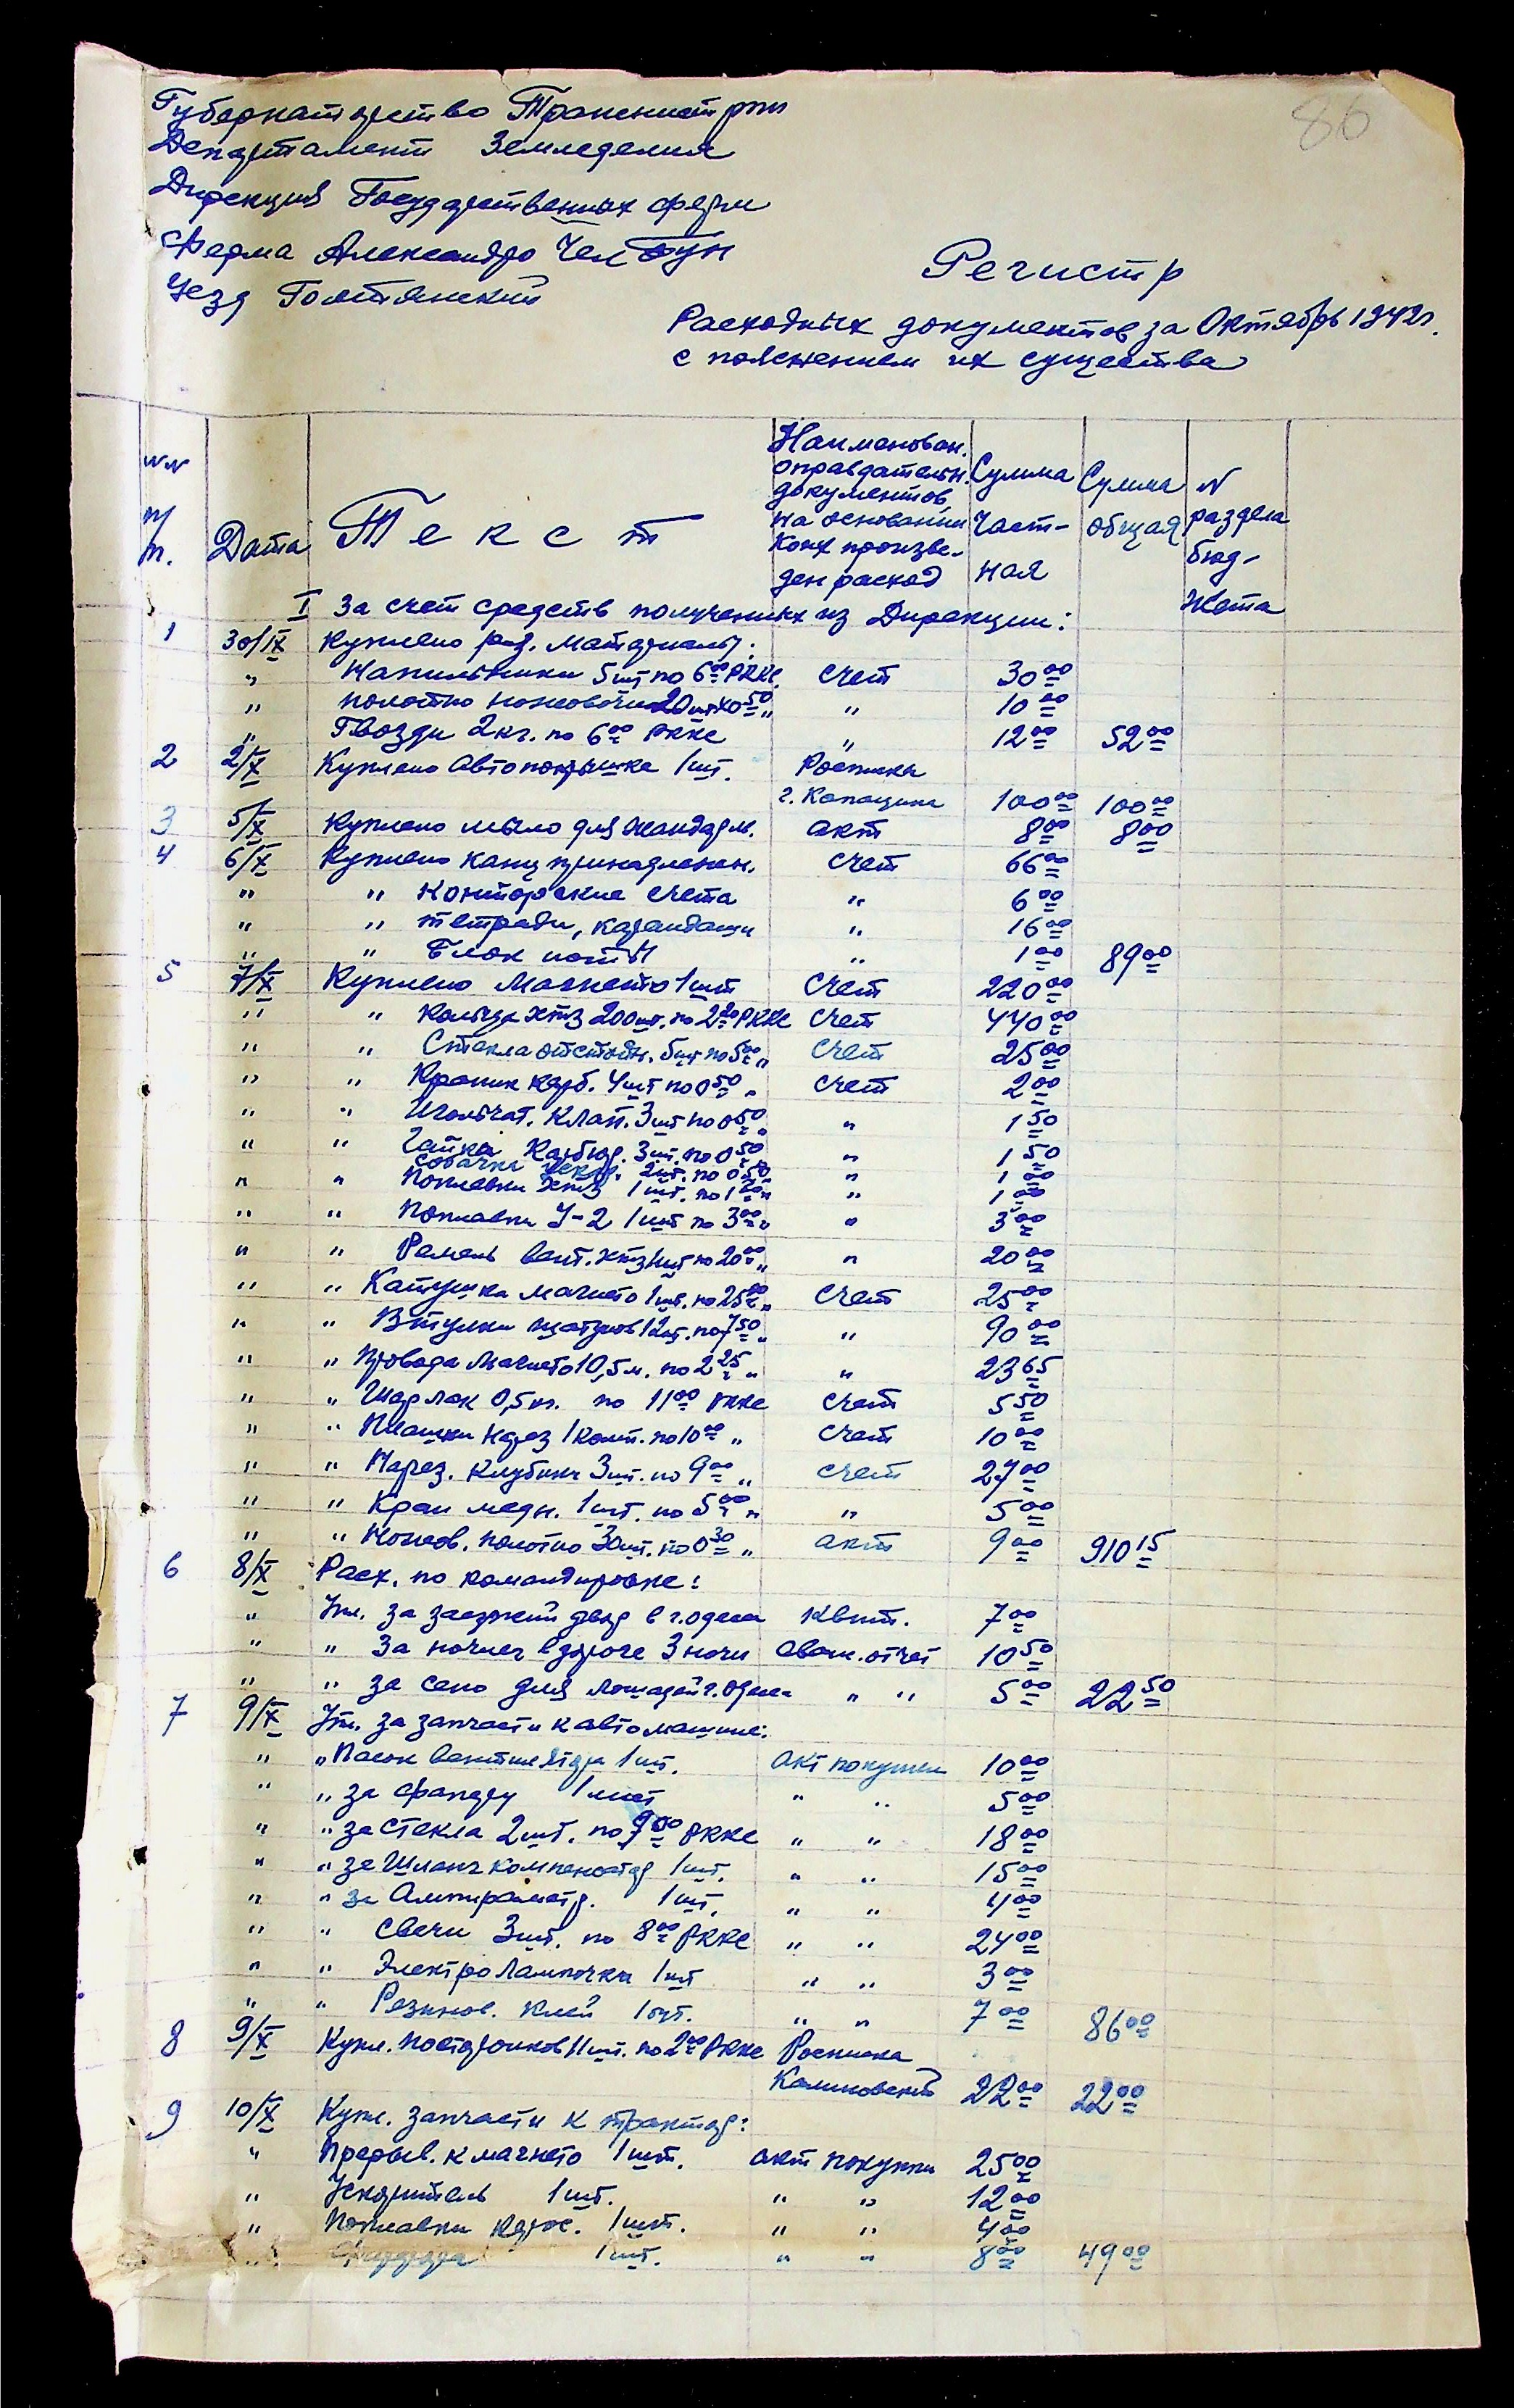 86
Губернаторство Транснистрии
Департамент Земледелия
Дирекция Государственных ферм
Ферма Александро Чел Бун
Уезд Голтянский
Регистр
Расходных документов за Октябрь 1942г.
с пояснением их существа
NN п/п. Дата Текст Наименован. оправдательн. документов на основании коих произведен расход Сумма частная Сумма общая N раздела бюджета
I За счет средств полученных из Дирекции:
1 30/IX Куплено раз. материалы:
" Напильники 5 шт по 6 00 РККС. Счет 30 00
" полотно ножовочн 20 шт х 0 50 " " 10 00
" Гвозди 2 кг. по 6 00 РККС " 12 00 52 00
2 2/X Куплено Автопокрышка 1 шт. Расписка
г. Капацина 100 00 100 00
3 5/X Куплено мыло для жандарм. акт 8 00 8 00
4 6/X Куплено канц принадлежн. Счет 66 00
" " Конторские счета " 6 00
" " тетради, карандаши " 16 00
" " Блок ноты " 1 00 89 00
5 7/X Куплено Магнето 1 шт Счет 220 00
" " Кольца ХТЗ 200 шт. по 2 20 РККС Счет 440 00
" " Стекла отстойн. 5 шт по 5 00 " Счет 25 00
" " Краник карб. 4 шт по 0 50 " Счет 2 00
" " Игольчат. клап. 3 шт по 0 50 " " 1 50
" " Гайка Карбюр. 3 шт. по 0 50 " 1 50
Собачка 2 шт. по 0 50 " 1 00
" " Поплавки ХТЗ 1 шт. по 1 00 " " 1 00
" " Поплавки У-2 1 шт по 3 00 " " 3 00
" " Ремень вент. ХТЗ 1 шт по 20 00 " " 20 00
" " Катушка магнето 1 шт. по 25 00 " Счет 25 00
" " Втулки шатунов 12 шт. по 7 50 " " 90 00
" " Провода Магнето 10,5 м. по 2 25 " " 23 65
" " Шарлак 0,5 кг. по 11 00 РККС Счет 5 50
" " Плашки нарез 1 комп. по 10 00 " Счет 10 00
" " Нарез. клубики 3 шт. по 9 00 " Счет 27 00
" " Кран медн. 1 шт. по 5 00 " " 5 00
" " Ножов. полотно 30 шт. по 0 30 " акт 9 00 910 15
6 8/X Расх. по командировке:
" Упл. за заезжий двор в г. Одесса Квит. 7 00
" " За ночлег в дороге 3 ночи Аванс. отчет 10 50
" " за сено для лошадей г. Одесса " " 5 00 22 50
7 9/X Упл. за запчасти к автомашине:
" " Пасок вентилятора 1 шт. акт покупки 10 00
" " за фанеру 1 лист " " 5 00
" " за стекла 2 шт. по 9 00 РККС " " 18 00
" " за Шланг компенсатор 1 шт. " " 15 00
" " за Амперметр. 1 шт. " " 4 00
" " Свечи 3 шт. по 8 00 РККС " " 24 00
" " Электро Лампочки 1 шт " " 3 00
" " Резинов. клей 1 бут. " " 7 00 86 00
8 9/X Купл. постромков 11 шт. по 2 00 РККС Расписка
Калиновский 22 00 22 00
9 10/X Купл. запчасти к трактор:
" Прерыв. к магнето 1 шт. акт покупки 25 00
" Ускоритель 1 шт. " " 12 00
" Поплавки керос. 1 шт. " " 4 00
" 1 шт. " " 8 00 49 00